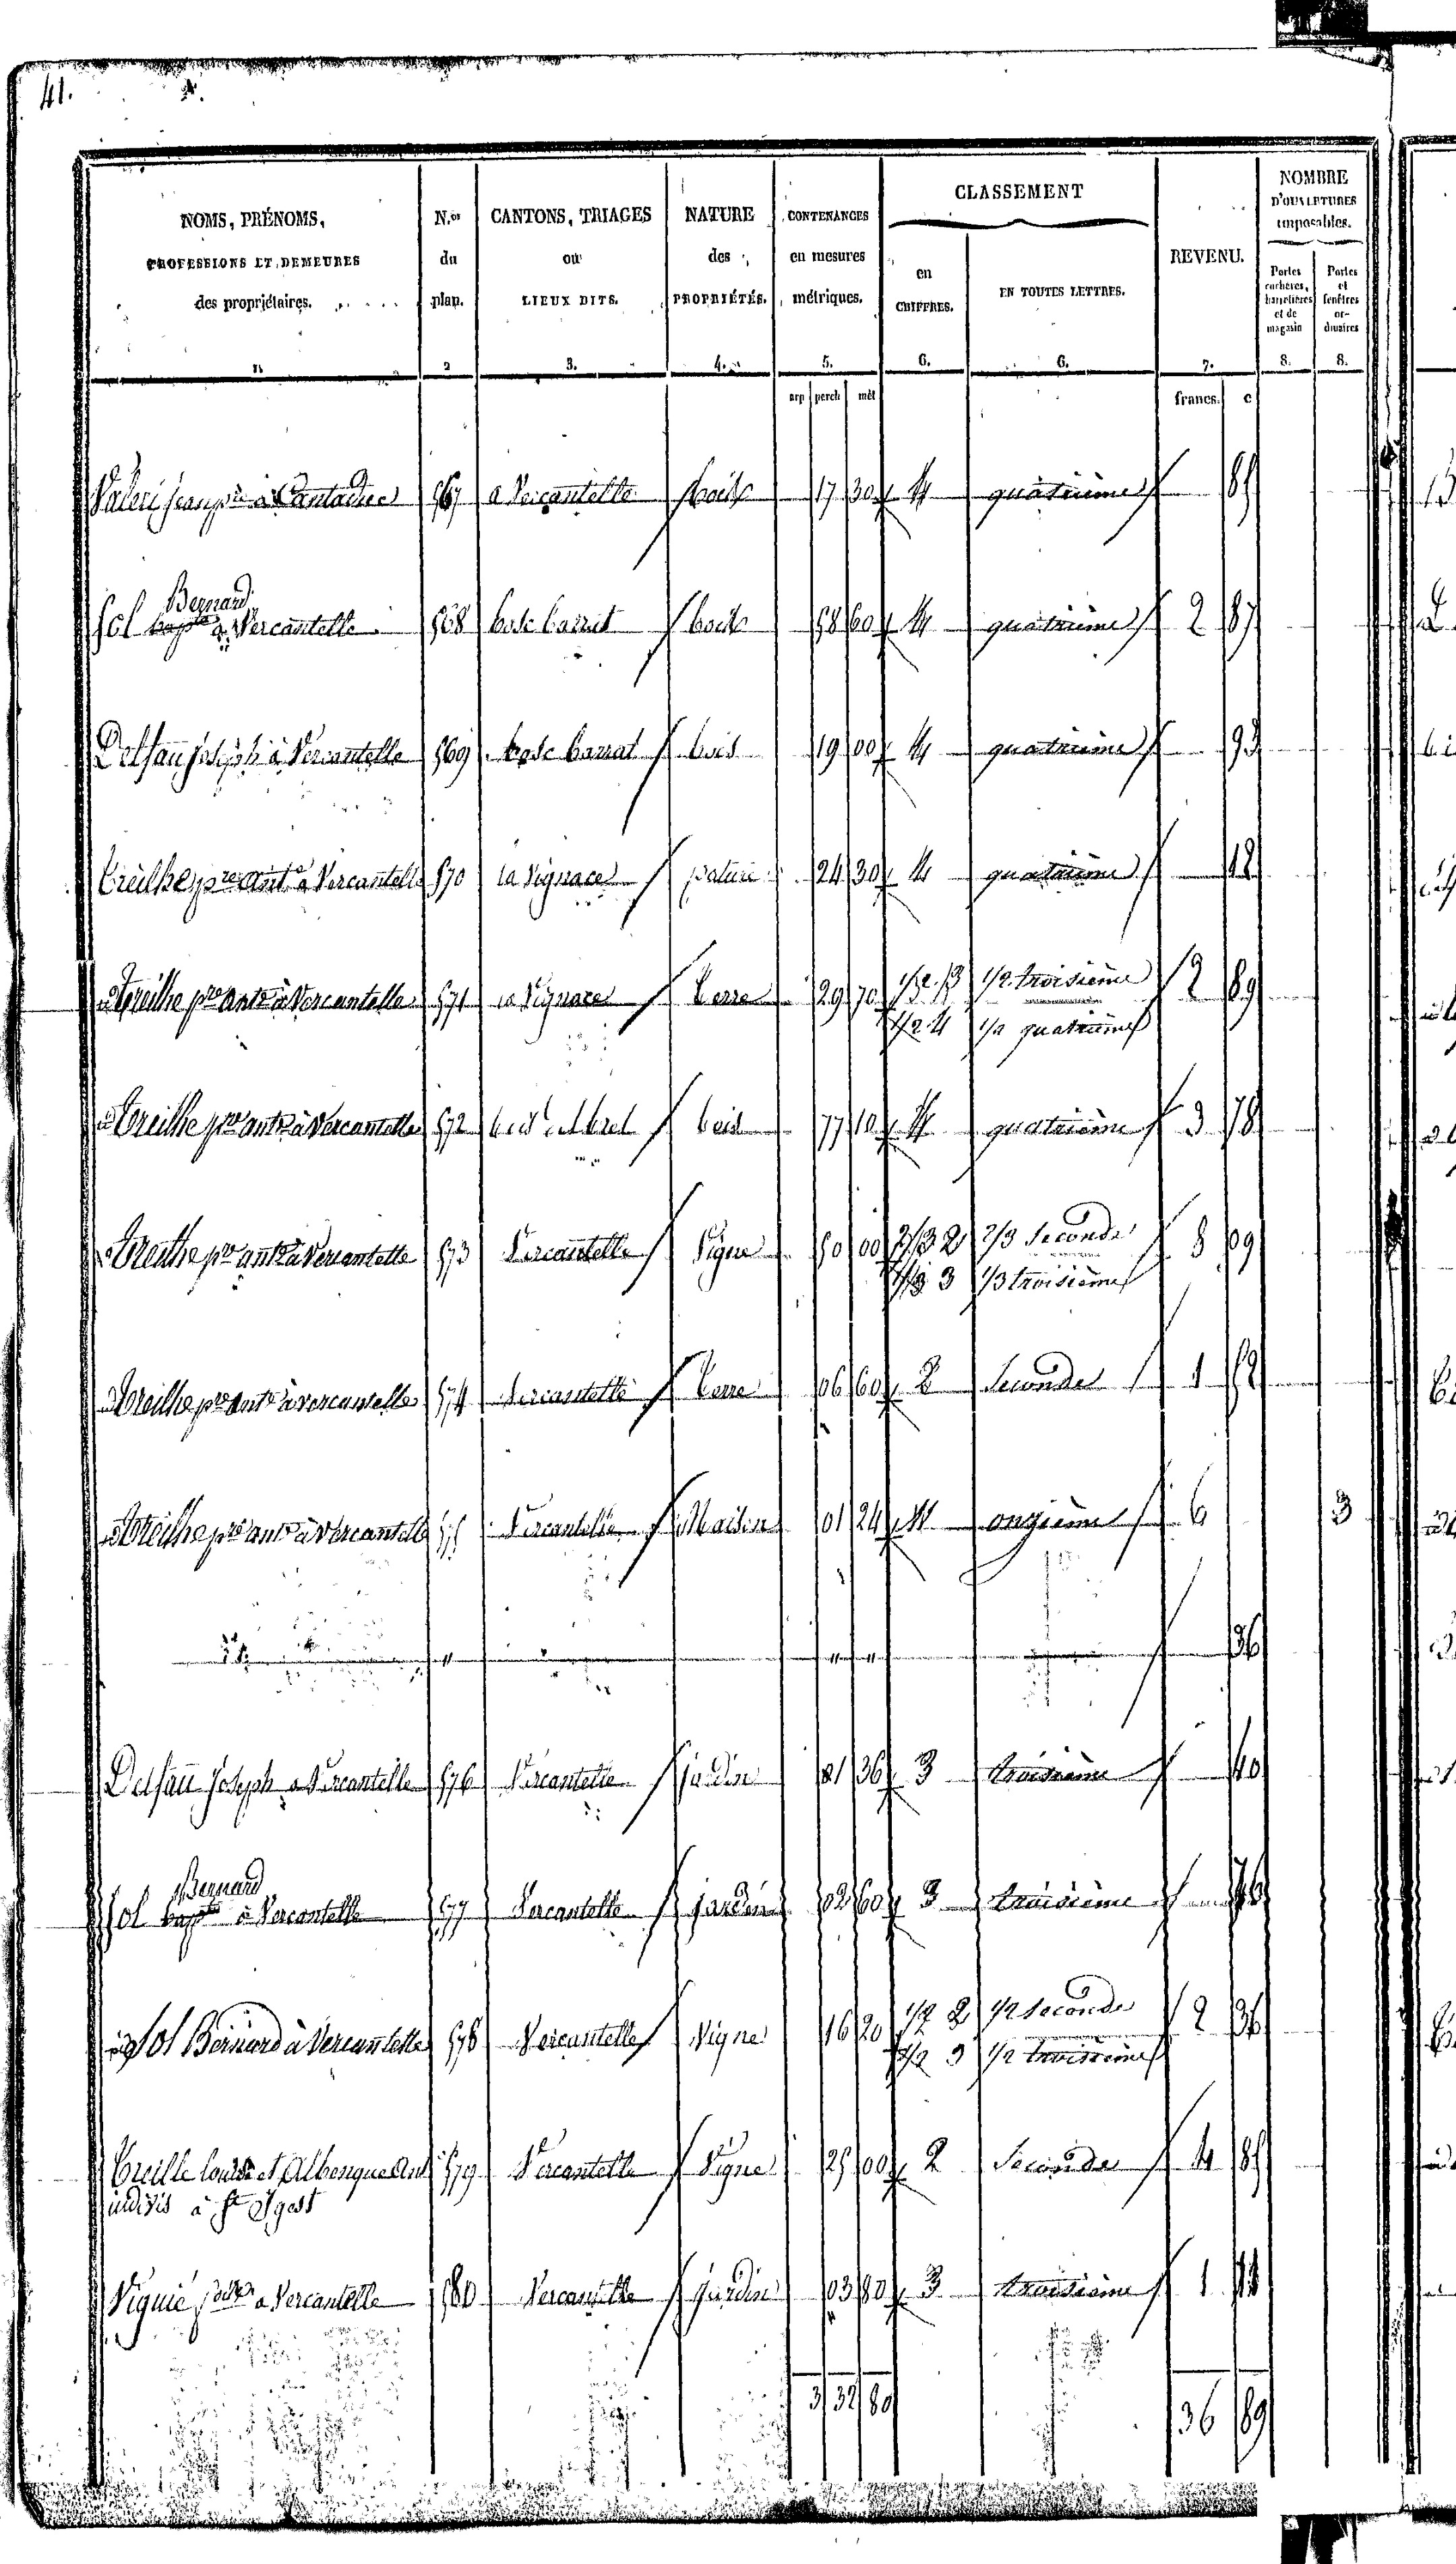 41.
NOMS, PRÉNOMS, PROFESSIONS ET DEMEURES des propriétaires. 1. | N.os du plan. 2 | CANTONS, TRIAGES ou LIEUX DITS. 3. | NATURE des PROPRIÉTÉS. 4. | CONTENANCES en mesures métriques. 5. | CLASSEMENT en CHIFFRES. 6. | EN TOUTES LETTRES. 6. | REVENU. 7. | NOMBRE D'OUVERTURES imposables. Portes cochères, charretières et de magasin 8. | Portes et fenêtres ordinaires 8.
arp perch mèt francs. c
Valeri Jean à Cantaduc 567 a Vercantelle bois 17 30 4 quatrième 85
Bernard
Sol bapte à Vercantelle 568 bosc barrat bois 58 60 4 quatrième 2 87
Delfau joseph à Vercantelle 569 bosc barrat bois 19 00 4 quatrième 93
Treilhe pre ant à Vercantelle 570 la Vignace pature 24 30 4 quatrième 12
Treilhe pre ant à Vercantelle 571 la Vignace terre 29 70 1/2 3 1/2 troisième 2 89
1/2 4 1/2 quatrième
Treilhe pre ant à Vercantelle 572 bois 77 10 4 quatrième 3 78
Treilhe pre ant à Vercantelle 573 Vercantelle Vigne 50 00 2/3 2 2/3 Seconde 8 09
1/3 3 1/3 troisième
Treilhe pre ant à Vercantelle 574 Vercantelle terre 06 60 2 Seconde 1 52
Treilhe pre ant à Vercantelle 575 Vercantelle Maison 01 24 11 onzième 6 3
id " " " " 36
Delfau Joseph a Vercantelle 576 Vercantelle jardin 01 36 3 troisième 40
Bernard
Sol bapte à Vercantelle 577 Vercantelle jardin 02 60 3 troisième 76
Sol Bernard à Vercantelle 578 Vercantelle Vigne 16 20 1/2 2 1/2 seconde 2 36
1/2 3 1/2 troisième
Treille louise et Albenque Ant 579 Vercantelle Vigne 25 00 2 Seconde 4 85
indivis à St Igest
Viguié à Vercantelle 580 Vercantelle jardin 03 80 3 troisième 1 11
3 32 80 36 89